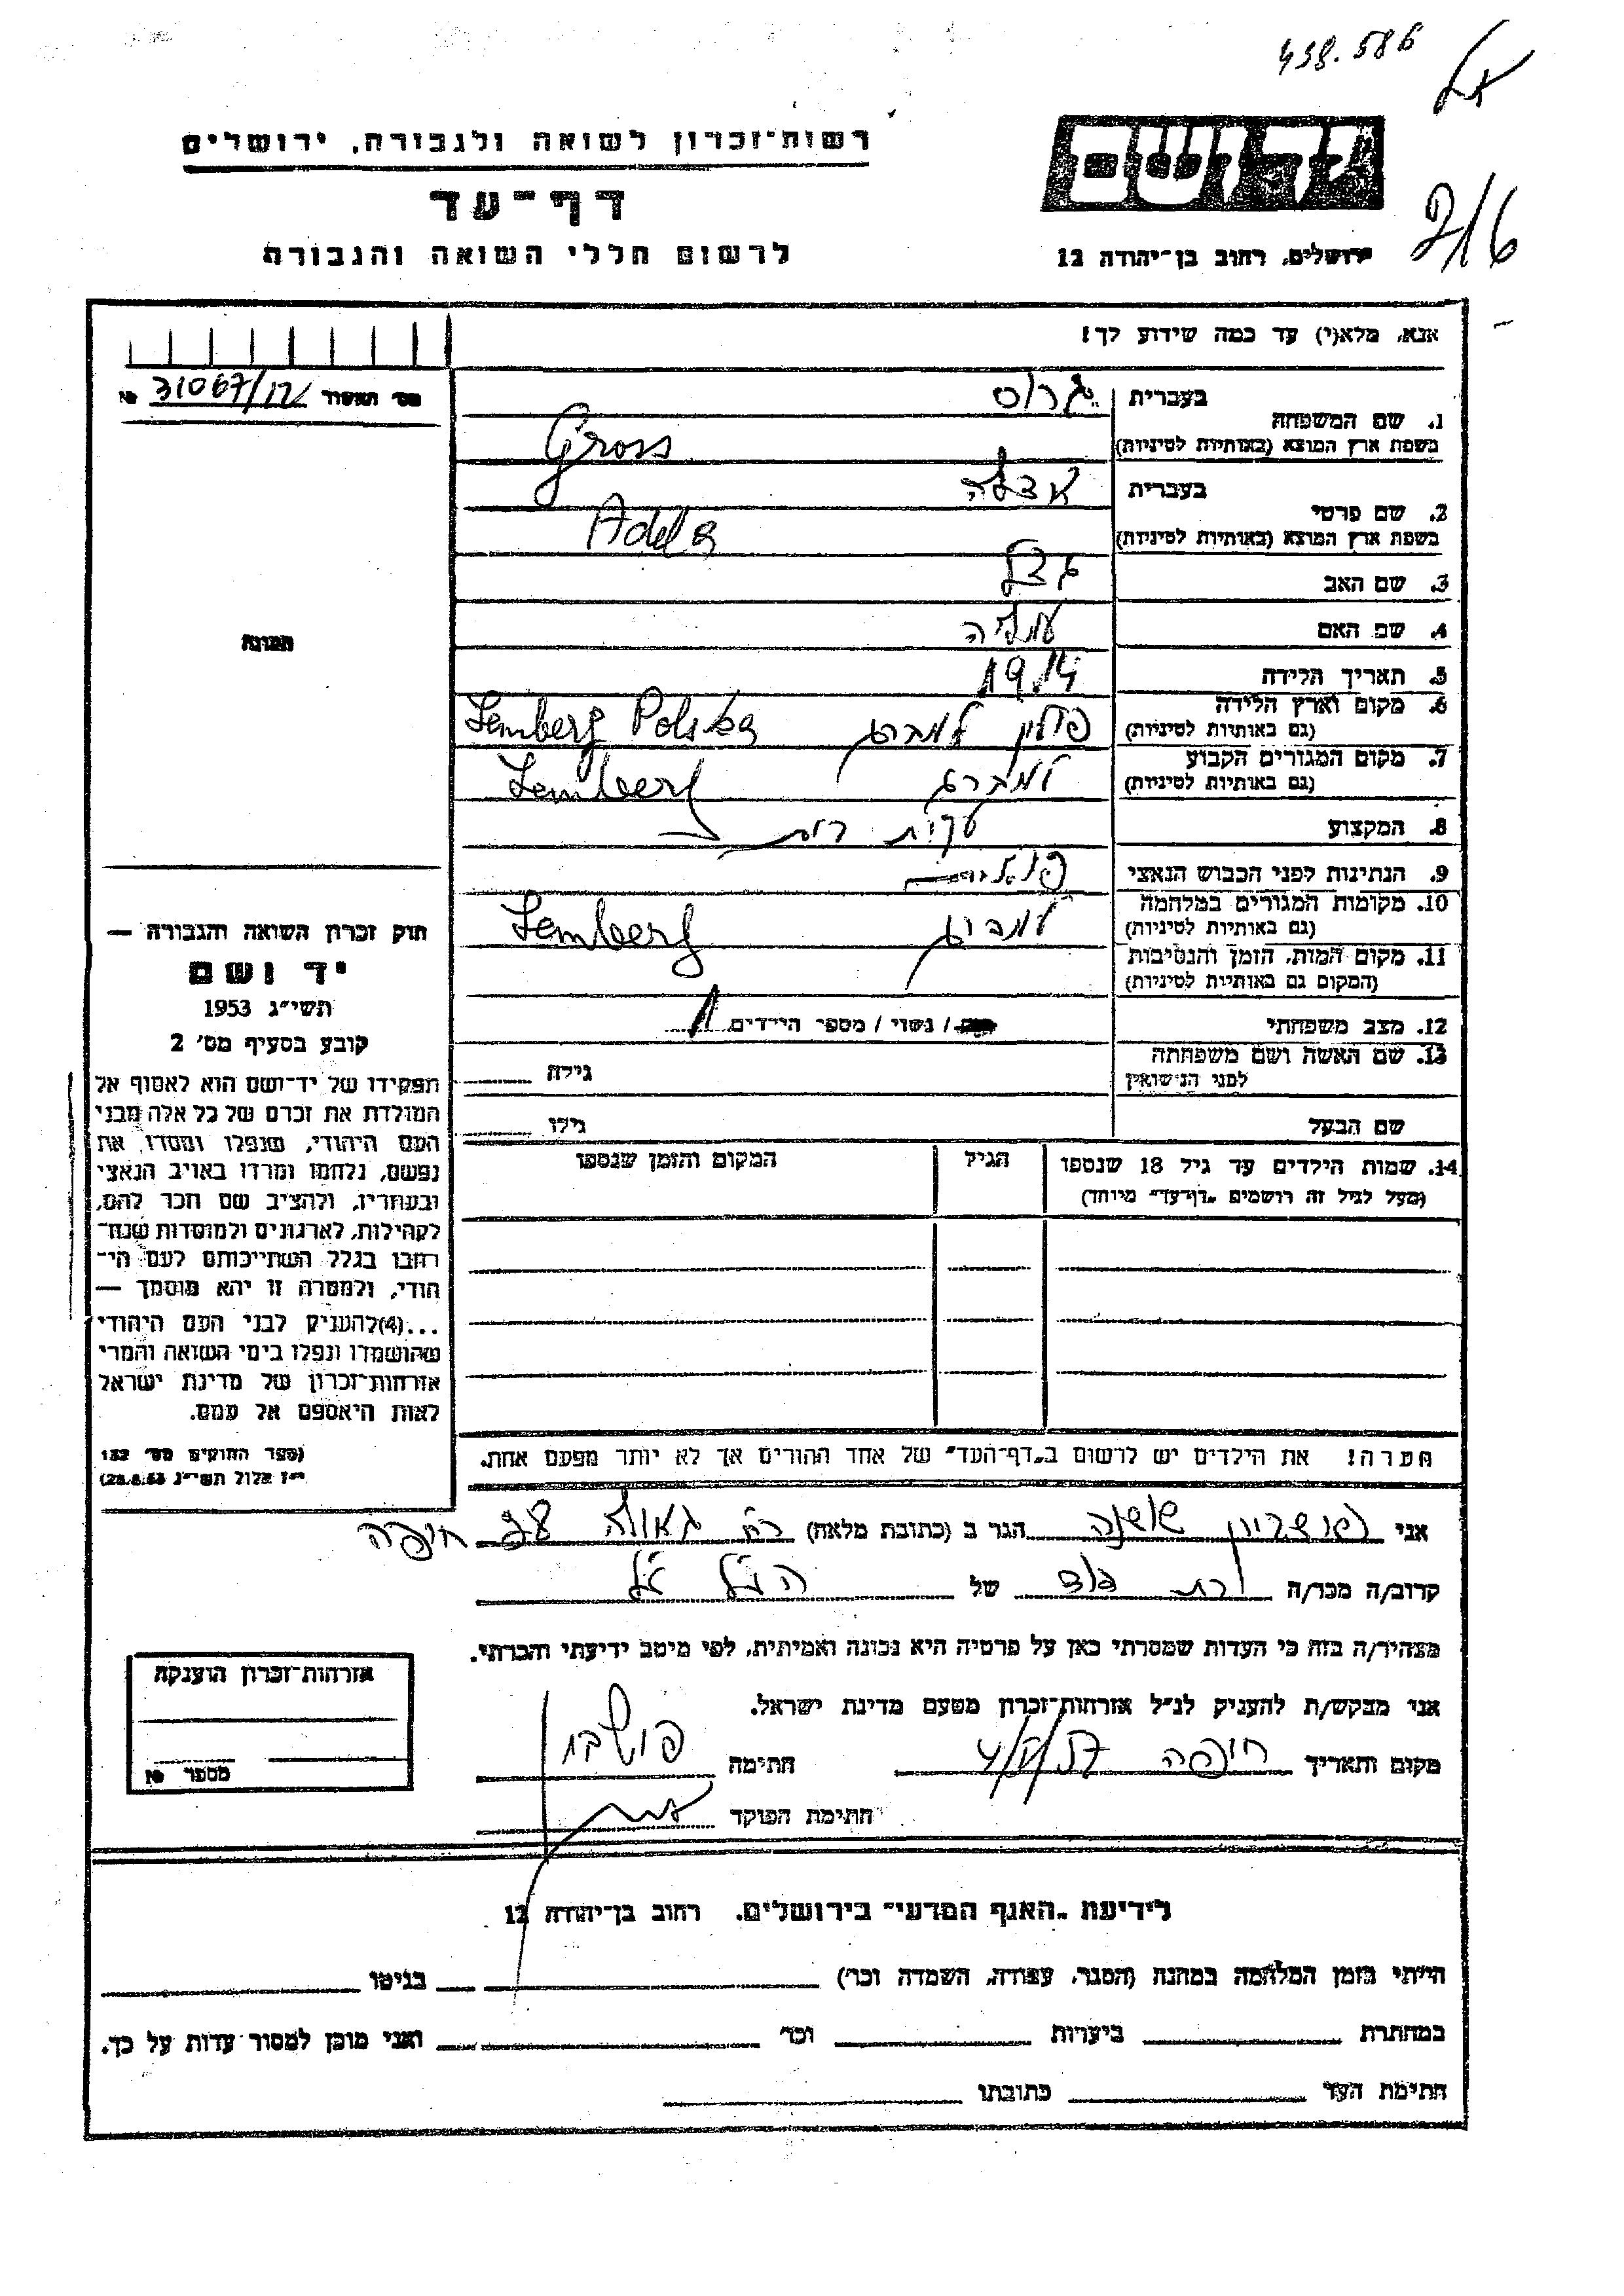 438.586
רשות־זכרון לשואה ולגבורה, ירושלים
דף־עד
לרשום חללי השואה והגבורה
ידושם
ירושלים, רחוב בן־יהודה 12
אנא, מלא(י) עד כמה שידוע לך!
מס׳ תאשור 31067/12 №
1. שם המשפחה
בעברית גרוס
בשפת ארץ המוצא (באותיות לטיניות) Gross
2. שם פרטי
בעברית אדלה
בשפת ארץ המוצא (באותיות לטיניות) Adela
3. שם האב
4. שם האם
5. תאריך הלידה 1914
6. מקום וארץ הלידה
(גם באותיות לטיניות) פולין למברג Lemberg Polska
7. מקום המגורים הקבוע
(גם באותיות לטיניות) למברג Lemberg
8. המקצוע עקרת בית
9. הנתינות לפני הכבוש הנאצי פולנית
10. מקומות המגורים במלחמה
(גם באותיות לטיניות) למברג Lemberg
11. מקום המות, הזמן והנסיבות
(המקום גם באותיות לטיניות)
12. מצב משפחתי רווק / נשוי / מספר הילדים 1
13. שם האשה ושם משפחתה
לפני הנישואין גילה
שם הבעל גילו
14. שמות הילדים עד גיל 18 שנספו הגיל המקום והזמן שנספו
(מעל לגיל זה רושמים „דף־עד״ מיוחד)
תמונה
חוק זכרון השואה והגבורה —
יד ושם
תשי״ג 1953
קובע בסעיף מס׳ 2
תפקידו של יד־ושם הוא לאסוף אל
המולדת את זכרם של כל אלה מבני
העם היהודי, שנפלו ומסרו את
נפשם, נלחמו ומרדו באויב הנאצי
ובעוזריו, ולהציב שם וזכר להם,
לקהילות, לארגונים ולמוסדות שנח־
רבו בגלל השתייכותם לעם הי־
הודי, ולמטרה זו יהא מוסמך —
...(4)להעניק לבני העם היהודי
שהושמדו ונפלו בימי השואה והמרי
אזרחות־זכרון של מדינת ישראל
לאות היאספם אל עמם.
(ספר החוקים מס׳ 132
י״ז אלול תשי״ג 28.8.53)
הערה! את הילדים יש לרשום ב„דף־העד״ של אחד ההורים אך לא יותר מפעם אחת.
אני שושנה הגר ב (כתובת מלאה) רח׳ גאולה חיפה
קרוב/ה מכר/ה בת דוד של הנ״ל
מצהיר/ה בזה כי העדות שמסרתי כאן על פרטיה היא נכונה ואמיתית, לפי מיטב ידיעתי והכרתי.
אני מבקש/ת להעניק לנ״ל אזרחות־זכרון מטעם מדינת ישראל.
מקום ותאריך חיפה חתימה
חתימת הפוקד
אזרחות־זכרון הוענקה
מספר №
לידיעת „האגף המדעי״ בירושלים, רחוב בן־יהודה 12
הייתי בזמן המלחמה במחנה (הסגר, עבודה, השמדה וכו׳) בגיטו
במחתרת ביערות וכו׳ ואני מוכן למסור עדות על כך.
חתימת העד כתובתו